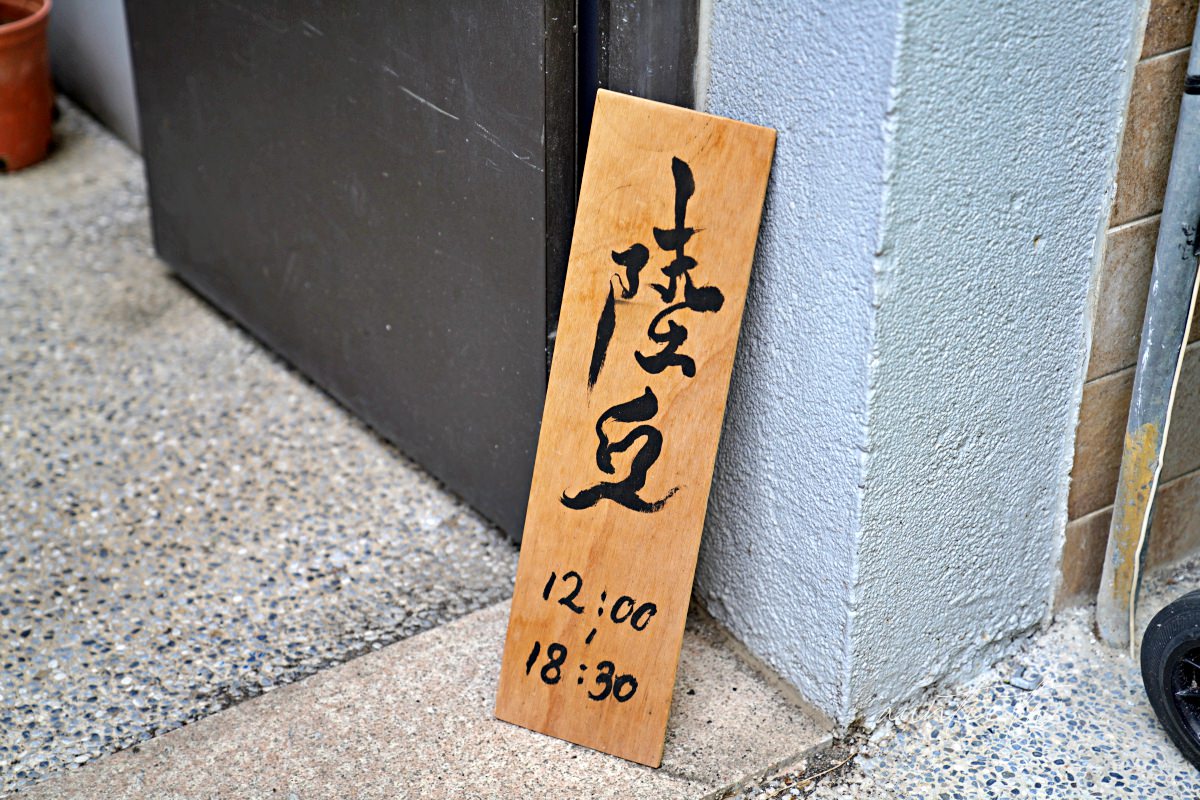 陸豆
12:00
|
18:30